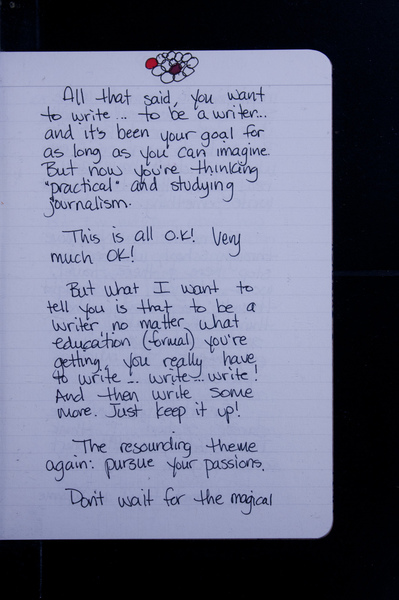 All that said, you want
to write... to be a writer...
and it's been your goal for
as long as you can imagine.
But now you're thinking
"practical" and studying
journalism.
This is all O.K! Very
much OK!
But what I want to
tell you is that to be a
writer, no matter what
education (formal) you're
getting, you really have
to write... write... write!
And then write some
more. Just keep it up!
The resounding theme
again: pursue your passions.
Don't wait for the magical